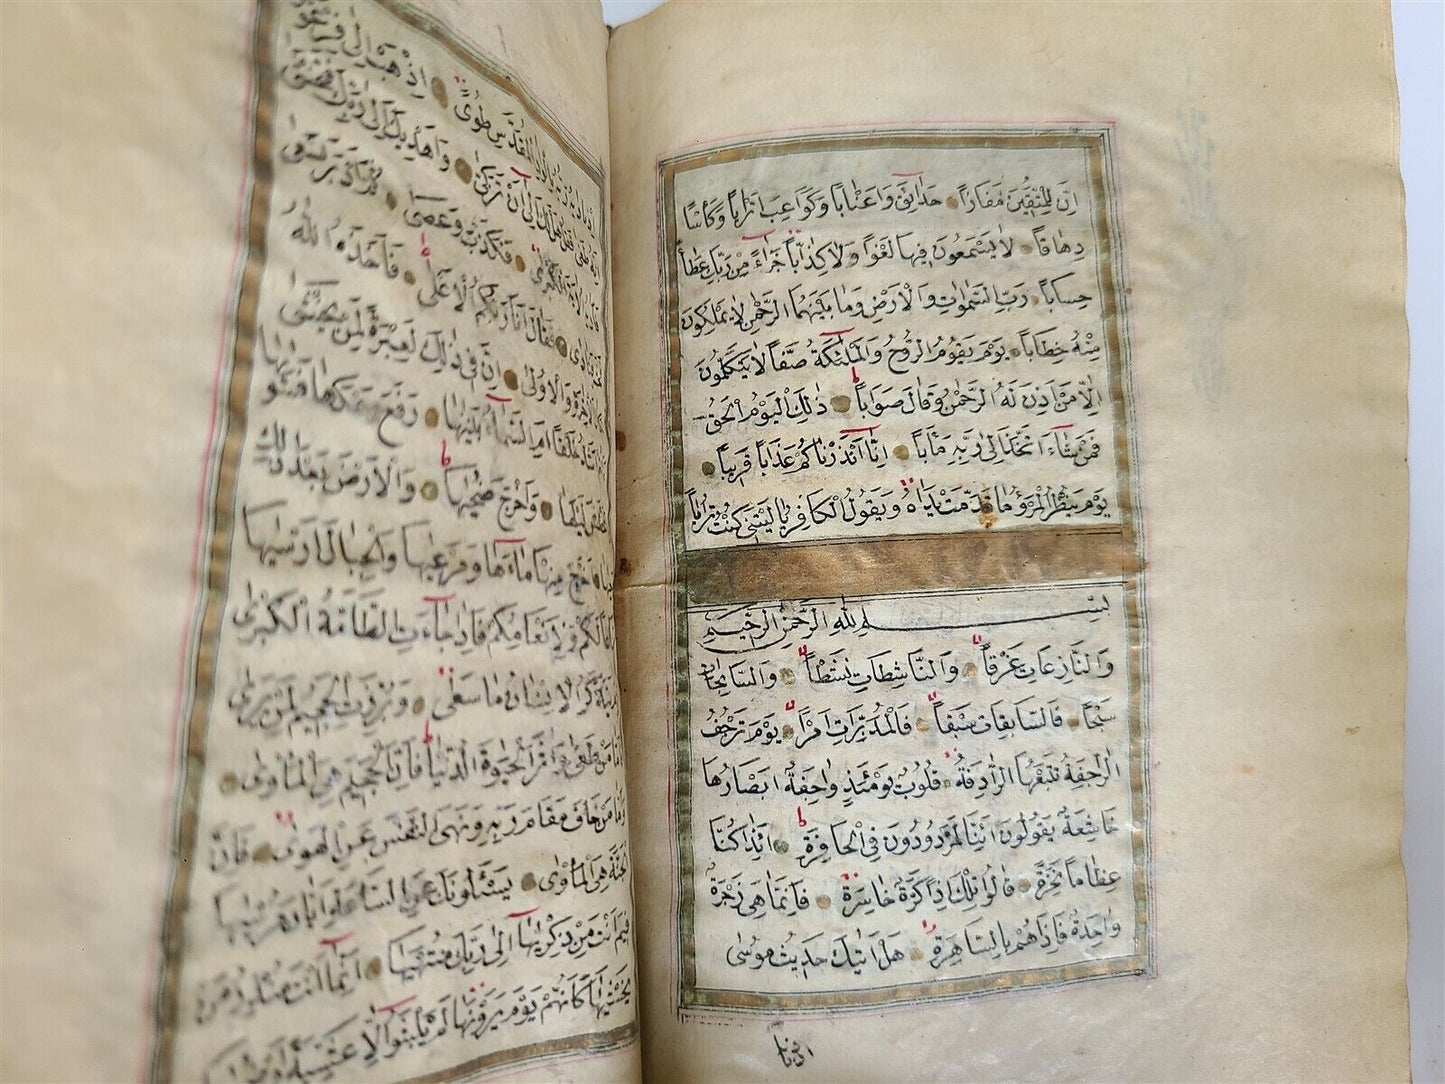 اِنَّ لِلْمُتَّقِينَ مَفَازاً حَدَائِقَ وَاَعْنَاباً وَكَوَاعِبَ اَتْرَاباً وَكَأْسًا
دِهَاقاً لَا يَسْمَعُونَ فِيهَا لَغْواً وَلَا كِذَّاباً جَزَاءً مِنْ رَبِّكَ عَطَاءً
حِسَاباً رَبِّ السَّمٰوَاتِ وَالْاَرْضِ وَمَا بَيْنَهُمَا الرَّحْمٰنِ لَا يَمْلِكُونَ
مِنْهُ خِطَاباً يَوْمَ يَقُومُ الرُّوحُ وَالْمَلٰئِكَةُ صَفّاً لَا يَتَكَلَّمُونَ
اِلَّا مَنْ اَذِنَ لَهُ الرَّحْمٰنُ وَقَالَ صَوَاباً ذٰلِكَ الْيَوْمُ الْحَقُّ
فَمَنْ شَاءَ اتَّخَذَ اِلٰى رَبِّهِ مَاٰباً اِنَّا اَنْذَرْنَاكُمْ عَذَاباً قَرِيباً
يَوْمَ يَنْظُرُ الْمَرْءُ مَا قَدَّمَتْ يَدَاهُ وَيَقُولُ الْكَافِرُ يَا لَيْتَنِي كُنْتُ تُرَاباً
بِسْمِ اللّٰهِ الرَّحْمٰنِ الرَّحِيمِ
وَالنَّازِعَاتِ غَرْقاً وَالنَّاشِطَاتِ نَشْطاً وَالسَّابِحَاتِ
سَبْحاً فَالسَّابِقَاتِ سَبْقاً فَالْمُدَبِّرَاتِ اَمْراً يَوْمَ تَرْجُفُ
الرَّاجِفَةُ تَتْبَعُهَا الرَّادِفَةُ قُلُوبٌ يَوْمَئِذٍ وَاجِفَةٌ اَبْصَارُهَا
خَاشِعَةٌ يَقُولُونَ ءَاِنَّا لَمَرْدُودُونَ فِي الْحَافِرَةِ ءَاِذَا كُنَّا
عِظَاماً نَخِرَةً قَالُوا تِلْكَ اِذاً كَرَّةٌ خَاسِرَةٌ فَاِنَّمَا هِيَ زَجْرَةٌ
وَاحِدَةٌ فَاِذَا هُمْ بِالسَّاهِرَةِ هَلْ اَتٰيكَ حَدِيثُ مُوسٰى
الْمُقَدَّسِ طُوًى اِذْهَبْ اِلٰى
فَقُلْ هَلْ لَكَ اِلٰى اَنْ تَزَكّٰى وَاَهْدِيَكَ اِلٰى رَبِّكَ فَتَخْشٰى
الْكُبْرٰى فَكَذَّبَ وَعَصٰى ثُمَّ اَدْبَرَ يَسْعٰى
فَنَادٰى فَقَالَ اَنَا رَبُّكُمُ الْاَعْلٰى فَاَخَذَهُ اللّٰهُ
وَالْاُولٰى اِنَّ فِي ذٰلِكَ لَعِبْرَةً لِمَنْ يَخْشٰى
خَلْقاً اَمِ السَّمَاءُ بَنٰيهَا رَفَعَ سَمْكَهَا فَسَوّٰيهَا
وَاَخْرَجَ ضُحٰيهَا وَالْاَرْضَ بَعْدَ ذٰلِكَ
اَخْرَجَ مِنْهَا مَاءَهَا وَمَرْعٰيهَا وَالْجِبَالَ اَرْسٰيهَا
لَكُمْ وَلِاَنْعَامِكُمْ فَاِذَا جَاءَتِ الطَّامَّةُ الْكُبْرٰى
يَتَذَكَّرُ الْاِنْسَانُ مَا سَعٰى وَبُرِّزَتِ الْجَحِيمُ لِمَنْ يَرٰى
مَنْ طَغٰى وَاٰثَرَ الْحَيٰوةَ الدُّنْيَا فَاِنَّ الْجَحِيمَ هِيَ الْمَأْوٰى
وَاَمَّا مَنْ خَافَ مَقَامَ رَبِّهِ وَنَهَى النَّفْسَ عَنِ الْهَوٰى فَاِنَّ
الْجَنَّةَ هِيَ الْمَأْوٰى يَسْئَلُونَكَ عَنِ السَّاعَةِ اَيَّانَ مُرْسٰيهَا
فِيمَ اَنْتَ مِنْ ذِكْرٰيهَا اِلٰى رَبِّكَ مُنْتَهٰيهَا اِنَّمَا اَنْتَ مُنْذِرُ مَنْ
يَخْشٰيهَا كَاَنَّهُمْ يَوْمَ يَرَوْنَهَا لَمْ يَلْبَثُوا اِلَّا عَشِيَّةً اَوْ